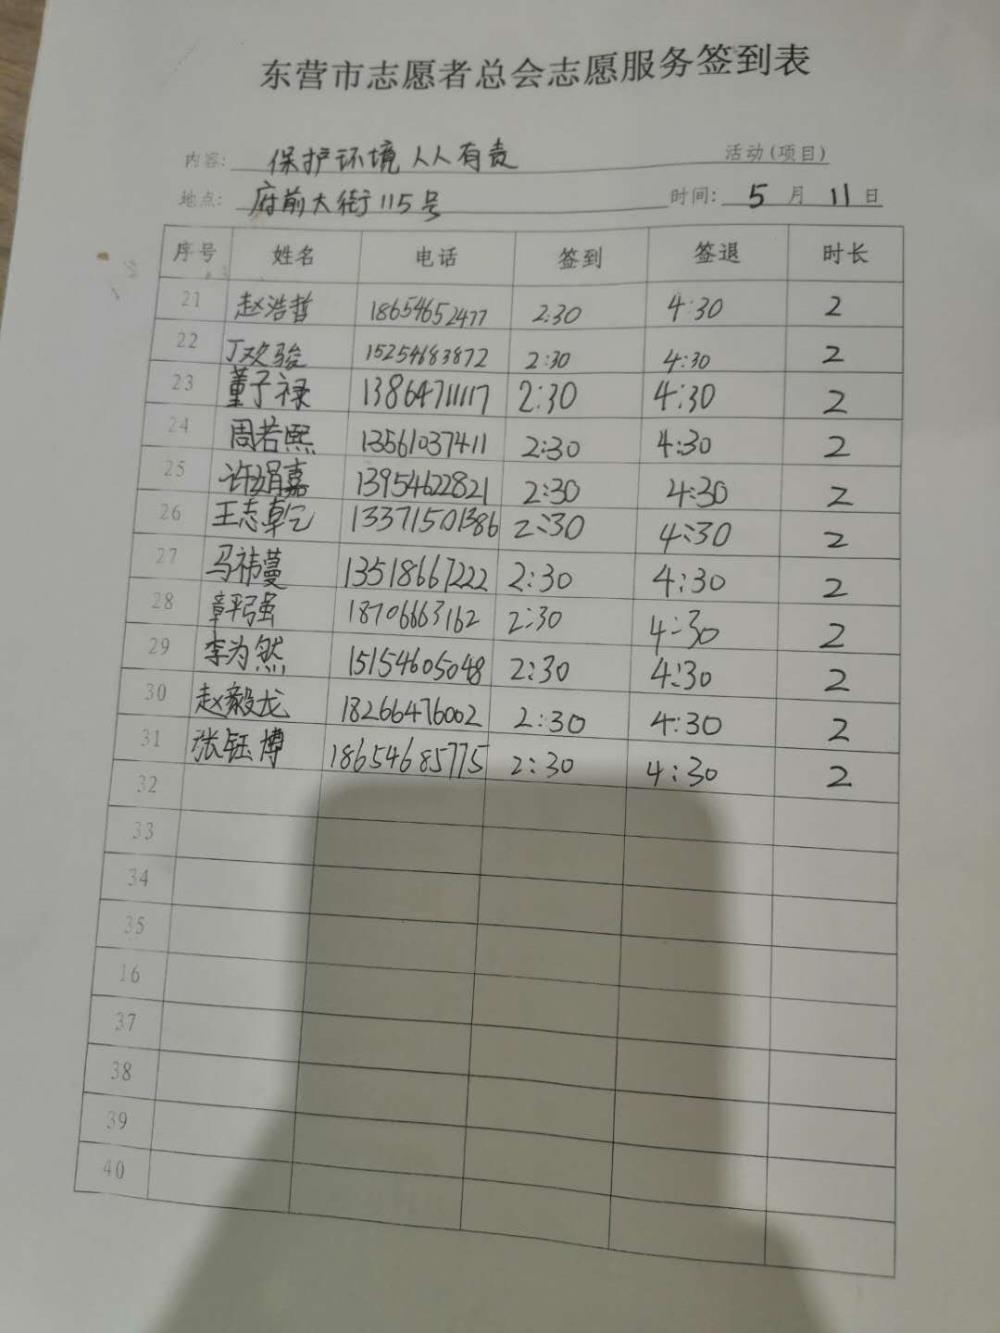 东营市志愿者总会志愿服务签到表
内容: 保护环境人人有责 活动(项目)
地点: 府前大街115号 时间: 5 月 11 日
序号 姓名 电话 签到 签退 时长
21 赵浩哲 18654652477 2:30 4:30 2
22 丁欢骏 15254683872 2:30 4:30 2
23 董子禄 13864711117 2:30 4:30 2
24 周若熙 13561037411 2:30 4:30 2
25 许娟嘉 13954622821 2:30 4:30 2
26 王志乾 13371501386 2:30 4:30 2
27 马祎蔓 13518667222 2:30 4:30 2
28 18706663162 2:30 4:30 2
29 李为然 15154605048 2:30 4:30 2
30 赵毅龙 18266476002 2:30 4:30 2
31 张钰博 18654685775 2:30 4:30 2
32
33
34
35
16
37
38
39
40